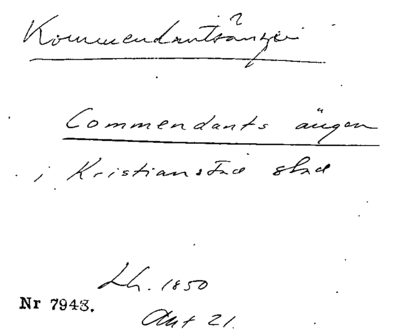 ?
Kommendantsängen
Commendants ängen
i Kristianstad stad
Lh. 1850
Nr 7943.
Akt 21.